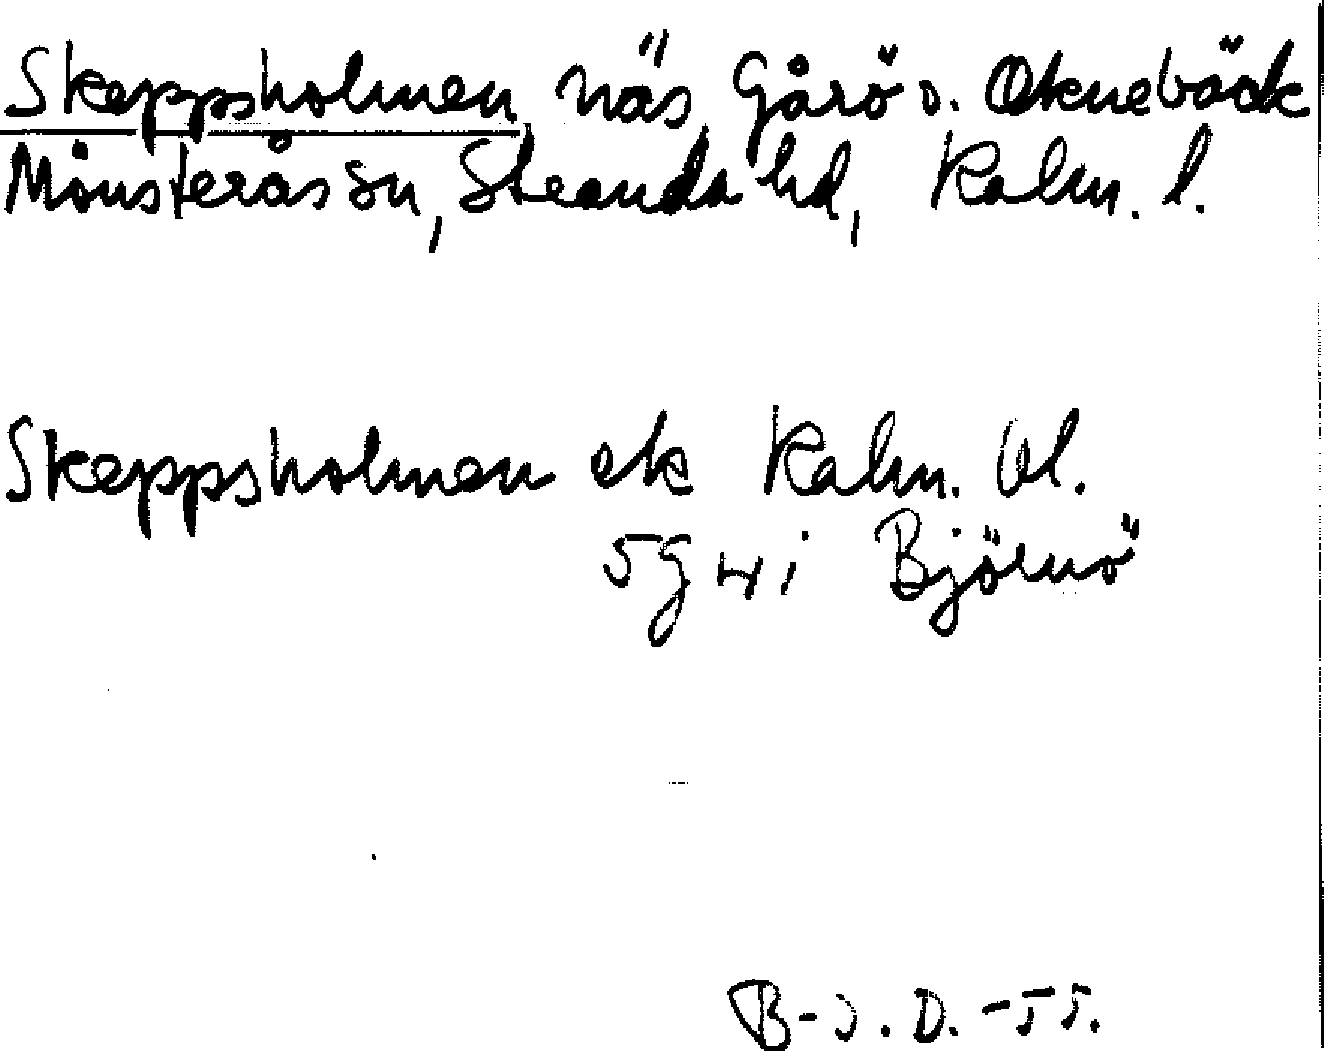 Skeppsholmen, näs, Gårö o. Oknebäck
Mönsterås sn, Stranda hd, Kalm. l.
Skeppsholmen ek Kalm. bl.
5g 4 i Björnö
B-J. D. -55.